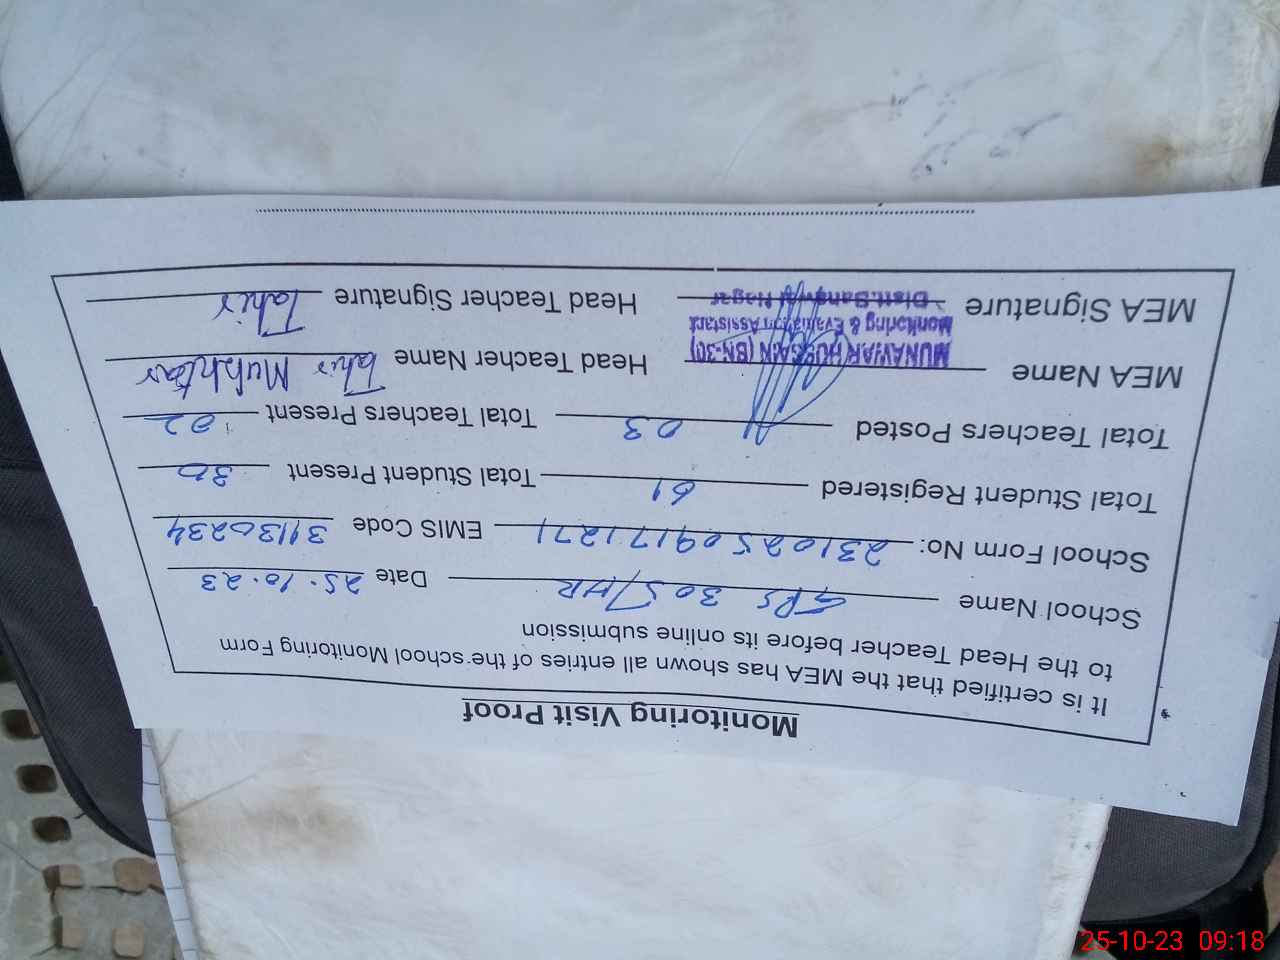 Monitoring Visit Proof
It is certified that the MEA has shown all entries of the school Monitoring Form
to the Head Teacher before its online submission
School Name GPS 305/HR Date 25.10.23
School Form No: 23102509171271 EMIS Code 31130234
Total Student Registered 61 Total Student Present 30
Total Teachers Posted 03 Total Teachers Present 02
MEA Name MUNAWAR HUSSAIN (BN-30) Head Teacher Name Tahir Mukhtar
Monitoring & Evaluation Assistant
MEA Signature Distt. Nagar Head Teacher Signature Tahir
25-10-23 09:18